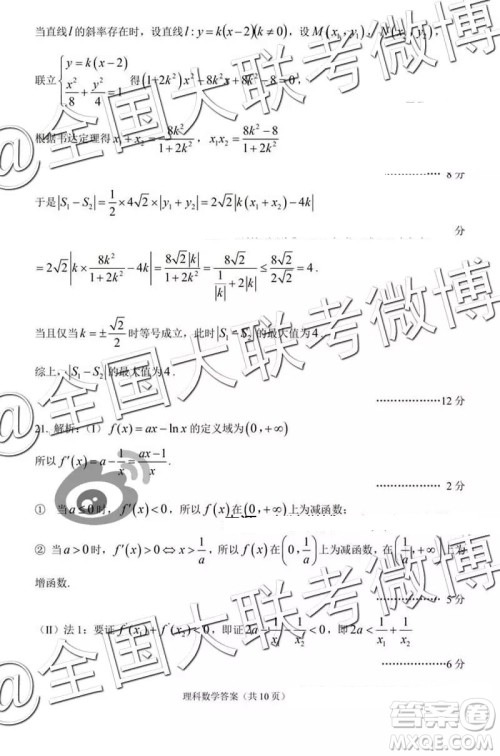 当直线 l 的斜率存在时，设直线 l : y = k(x−2)(k≠0)，设 M(x₁, y₁)，N(x₂, y₂)，
联立 { y = k(x−2)   x²/8 + y²/4 = 1   得 (1+2k²)x² − 8k²x + 8k² − 8 = 0，
根据韦达定理得 x₁ + x₂ = 8k²/(1+2k²)，x₁x₂ = (8k²−8)/(1+2k²)
8 分
于是 |S₁−S₂| = 1/2 × 4√2 × |y₁+y₂| = 2√2 |k(x₁+x₂)−4k|
分
= 2√2 |k × 8k²/(1+2k²) − 4k| = 8√2|k|/(1+2k²) = 8√2/(1/|k| + 2|k|) ≤ 8√2/2√2 = 4 .
当且仅当 k = ±√2/2 时等号成立，此时 |S₁−S₂| 的最大值为 4 .
综上，|S₁−S₂| 的最大值为 4 .
12 分
21. 解析：(I) f(x) = ax − ln x 的定义域为 (0, +∞)
所以 f′(x) = a − 1/x = (ax−1)/x .
2 分
① 当 a ≤ 0 时，f′(x) < 0，所以 f(x) 在 (0, +∞) 上为减函数；
② 当 a > 0 时，f′(x) > 0 ⇔ x > 1/a，所以 f(x) 在 (0, 1/a) 上为减函数，在 (1/a, +∞) 上为
增函数.
5 分
(II) 法 1：要证 f′(x₁) + f′(x₂) < 0，即证 2a − 1/x₁ − 1/x₂ < 0，即 2a < 1/x₁ + 1/x₂
6 分
理科数学答案（共 10 页）
@全国大联考微博
@全国大联考微博
@全国大联考微博
答案圈
MXQE.COM